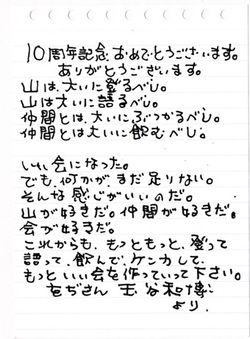 10周年記念おめでとうございます。
ありがとうございます。
山は大いに登るべし。
山は大いに語るべし。
仲間とは、大いにぶつかるべし。
仲間とは大いに飲むべし。
いい会になった。
でも、何かが、まだ足りない。
そんな感じがいいのだ。
山が好きだ。仲間が好きだ。
会が好きだ。
これからも、もっともっと、登って
語って、飲んで、ケンカして、
もっといい会を作っていって下さい。
をぢさん 玉谷和博
より。